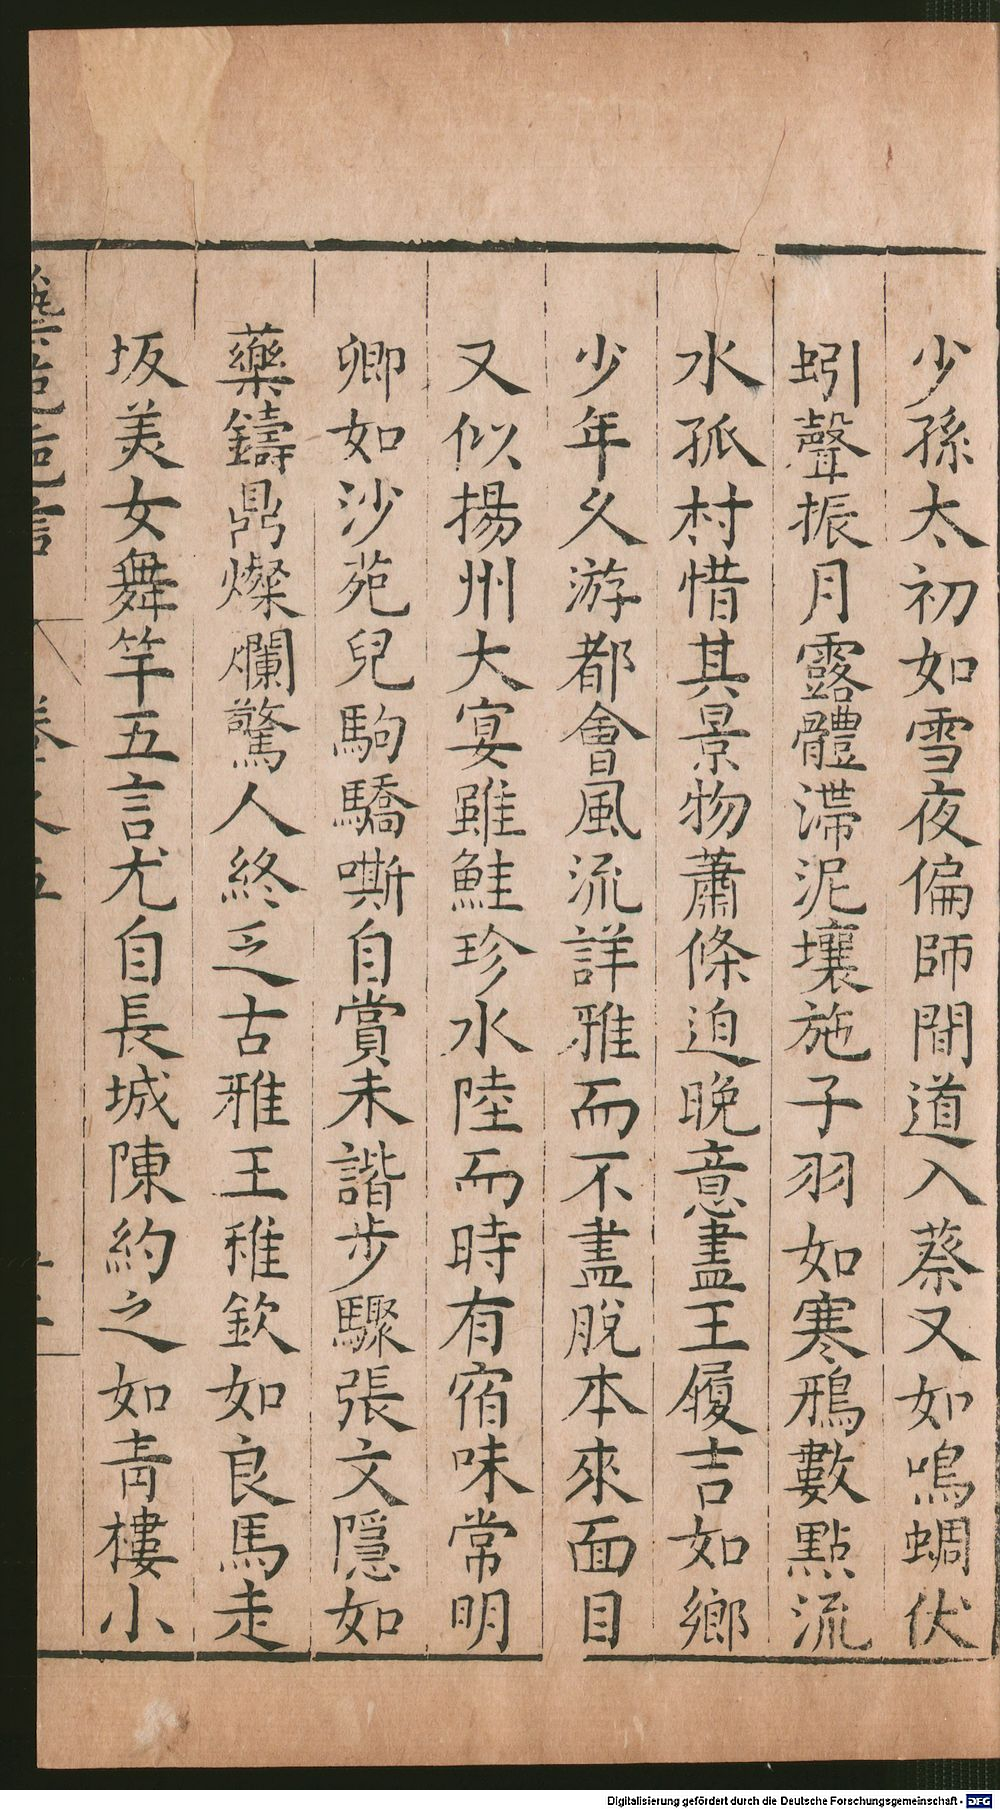 少孫太初如雪夜偏師間道入蔡又如鳴蜩伏
蚓聲振月露體滯泥壤施子羽如寒鴉數點流
水孤村惜其景物蕭條迫晚意盡王履吉如鄉
少年久游都會風流詳雅而不盡脫本來面目
又似揚州大宴雖鮭珍水陸而時有宿味常明
卿如沙苑兒駒驕嘶自賞未諧步驟張文隱如
藥鑄鼎燦爛驚人終乏古雅王稚欽如良馬走
坂美女舞竿五言尤自長城陳約之如青樓小
藝苑巵言 卷之五
Digitalisierung gefördert durch die Deutsche Forschungsgemeinschaft - DFG